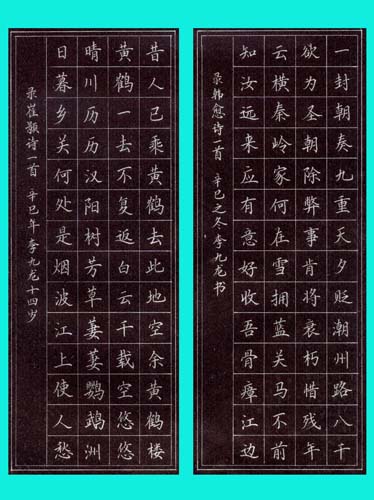 一封朝奏九重天夕贬潮州路八千
欲为圣朝除弊事肯将衰朽惜残年
云横秦岭家何在雪拥蓝关马不前
知汝远来应有意好收吾骨瘴江边
录韩愈诗一首 辛巳之冬李九龙书
昔人已乘黄鹤去此地空余黄鹤楼
黄鹤一去不复返白云千载空悠悠
晴川历历汉阳树芳草萋萋鹦鹉洲
日暮乡关何处是烟波江上使人愁
录崔颢诗一首 辛巳年李九龙十四岁